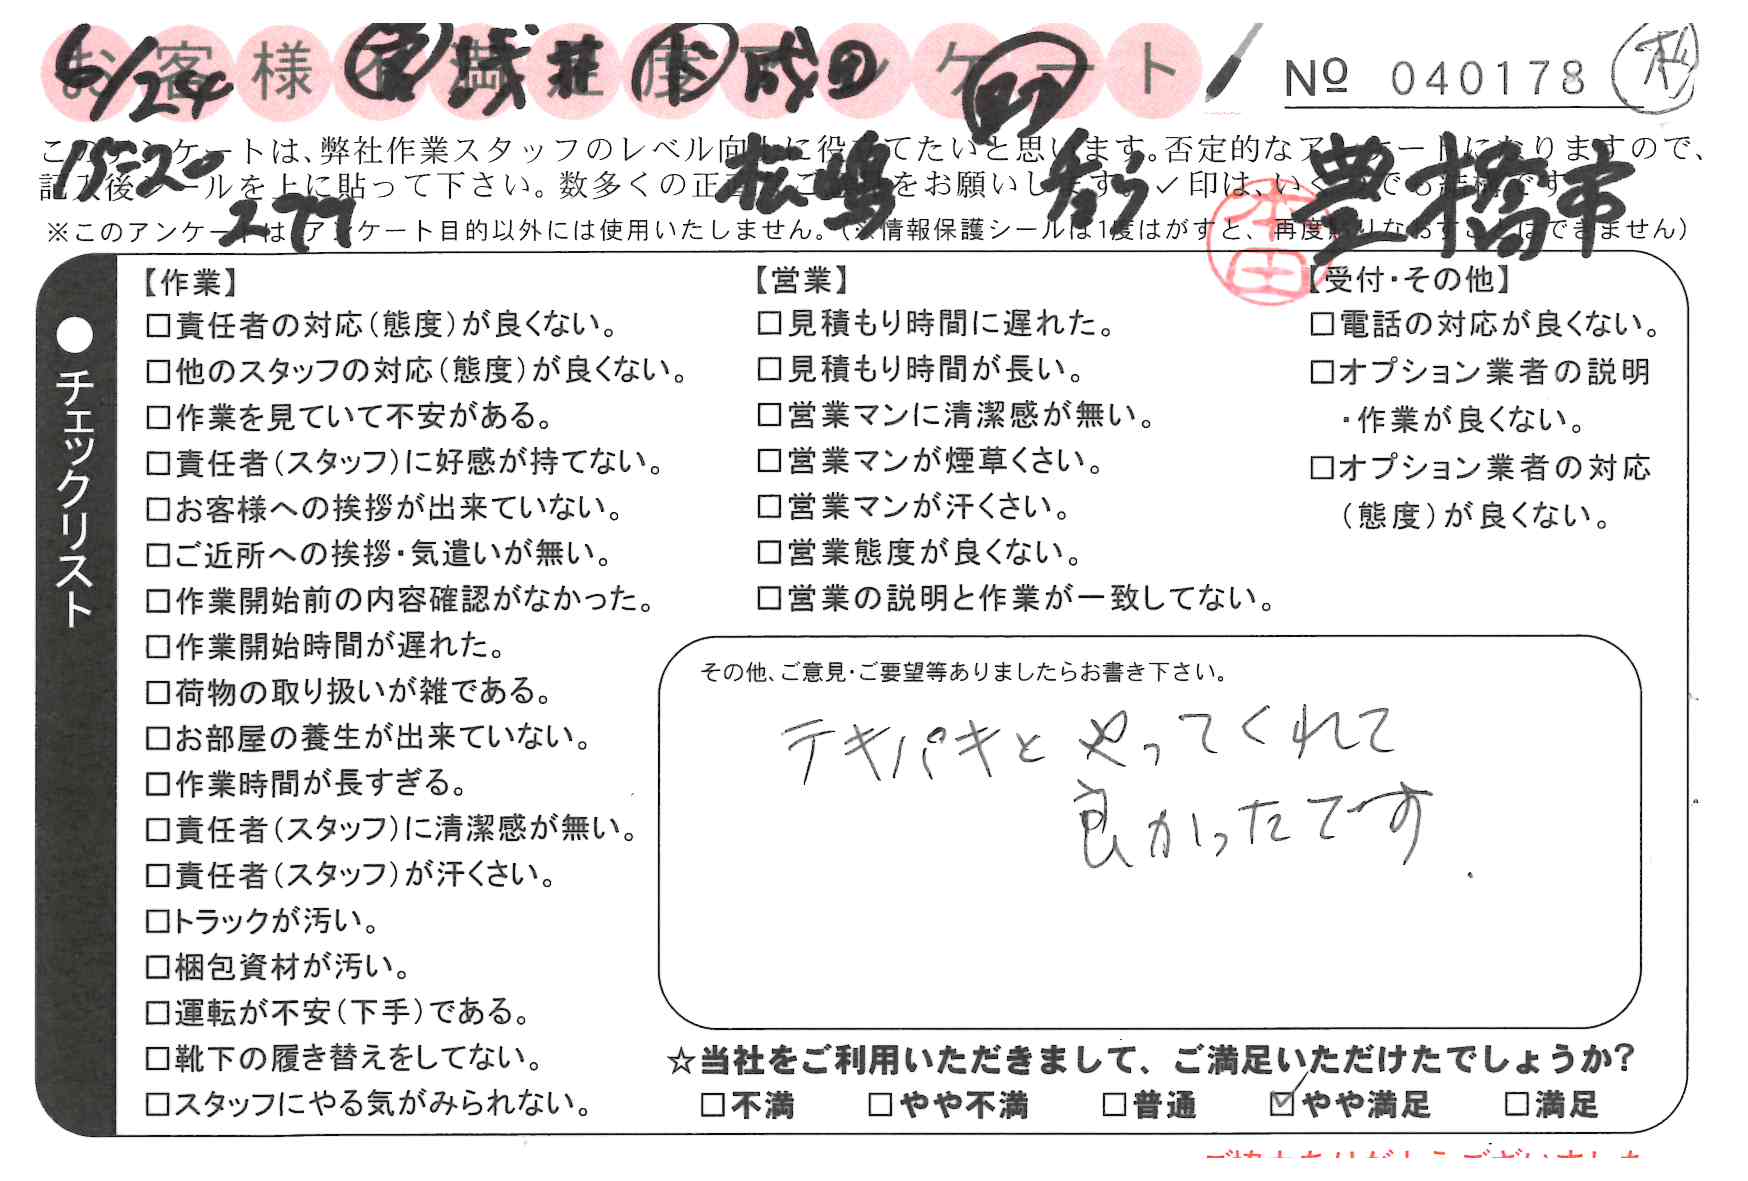 お客様不満足度アンケート
№ 040178
6/24 浅井 成田
このアンケートは、弊社作業スタッフのレベル向上に役立てたいと思います。否定的なアンケートになりますので、
記入後シールを上に貼って下さい。数多くの正直なご意見をお願いします。✓印は、いくつでも結構です。
15-20 松嶋 豊橋市
277
※このアンケートは、アンケート目的以外には使用いたしません。(※情報保護シールは1度はがすと、再度貼りなおすことはできません)
本田
●チェックリスト
【作業】
□責任者の対応(態度)が良くない。
□他のスタッフの対応(態度)が良くない。
□作業を見ていて不安がある。
□責任者(スタッフ)に好感が持てない。
□お客様への挨拶が出来ていない。
□ご近所への挨拶・気遣いが無い。
□作業開始前の内容確認がなかった。
□作業開始時間が遅れた。
□荷物の取り扱いが雑である。
□お部屋の養生が出来ていない。
□作業時間が長すぎる。
□責任者(スタッフ)に清潔感が無い。
□責任者(スタッフ)が汗くさい。
□トラックが汚い。
□梱包資材が汚い。
□運転が不安(下手)である。
□靴下の履き替えをしてない。
□スタッフにやる気がみられない。
【営業】
□見積もり時間に遅れた。
□見積もり時間が長い。
□営業マンに清潔感が無い。
□営業マンが煙草くさい。
□営業マンが汗くさい。
□営業態度が良くない。
□営業の説明と作業が一致してない。
【受付・その他】
□電話の対応が良くない。
□オプション業者の説明
・作業が良くない。
□オプション業者の対応
(態度)が良くない。
その他、ご意見・ご要望等ありましたらお書き下さい。
テキパキとやってくれて
良かったです.
☆当社をご利用いただきまして、ご満足いただけたでしょうか?
□不満 □やや不満 □普通 ☑やや満足 □満足
ご協力ありがとうございました